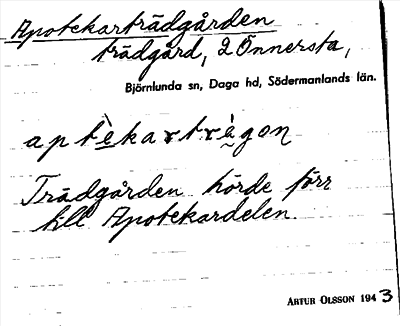 Apotekarträdgården
trädgård, 2 Önnersta,
Björnlunda sn, Daga hd, Södermanlands län.
aptèkarträ̀gon
Trädgården hörde förr
till Apotekardelen.
ARTUR OLSSON 1943